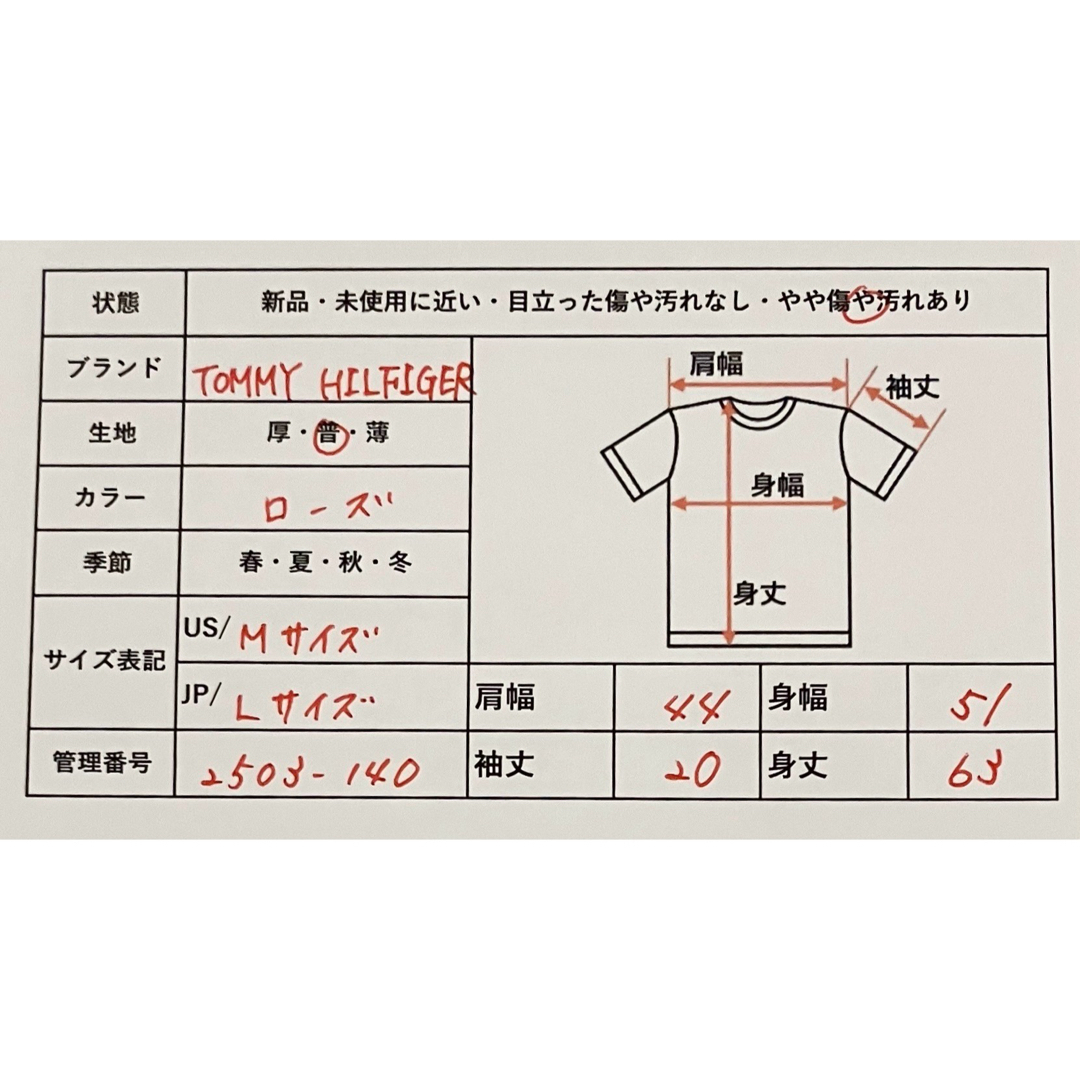 状態 新品・未使用に近い・目立った傷や汚れなし・やや傷や汚れあり
ブランド TOMMY HILFIGER
生地 厚・普・薄
カラー ローズ
季節 春・夏・秋・冬
サイズ表記
US/ Mサイズ
JP/ Lサイズ
管理番号 2503-140
肩幅
袖丈
身幅
身丈
肩幅 44 身幅 51
袖丈 20 身丈 63